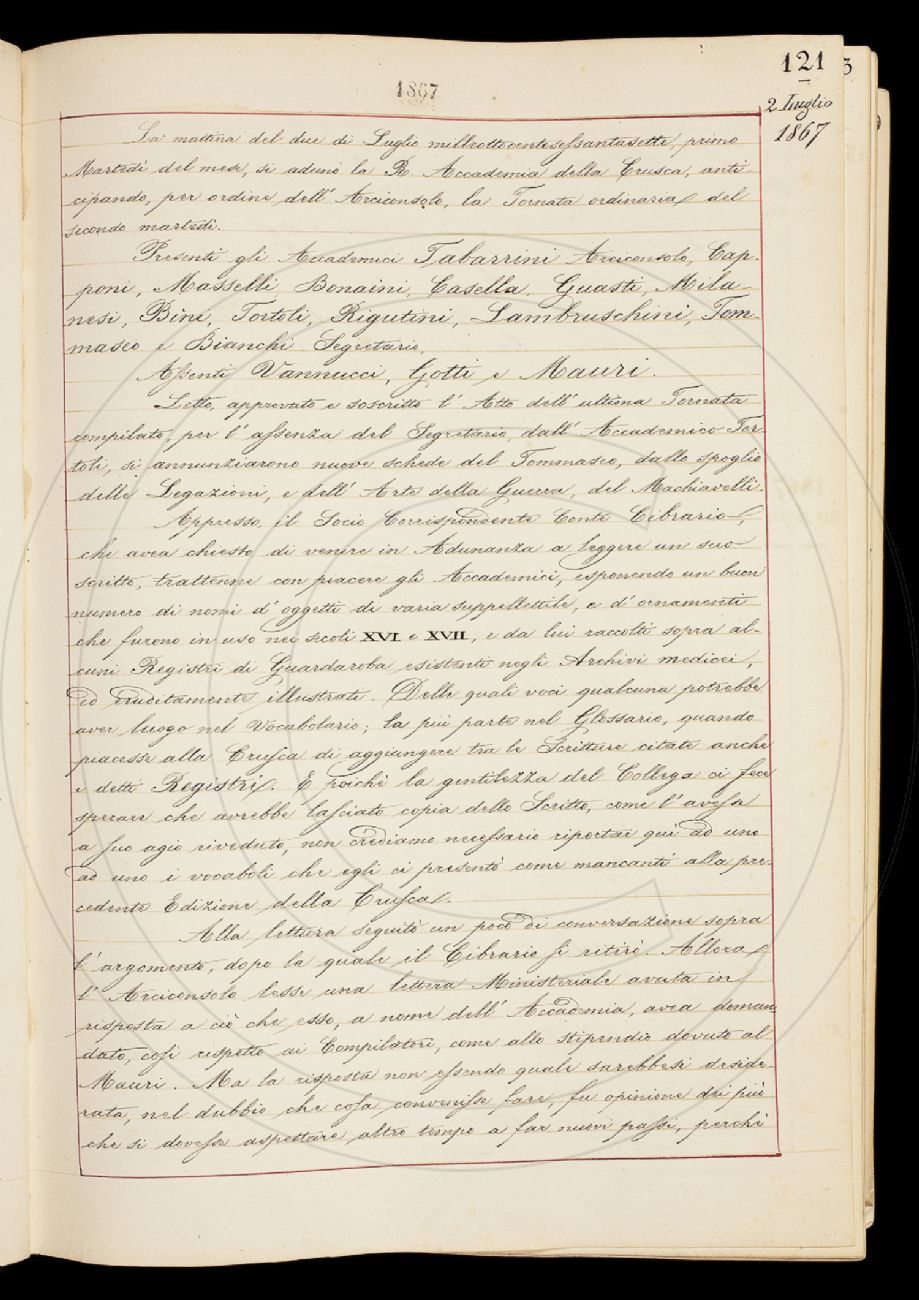 121
1867
2 Luglio
1867
La mattina del due di Luglio milleottocentosessantasette, primo
Martedì del mese, si adunò la R. Accademia della Crusca, anti-
cipando, per ordine dell' Arciconsolo, la Tornata ordinaria del
secondo martedì.
Presenti gli Accademici Tabarrini Arciconsolo, Cap-
poni, Masselli Bonaini, Casella, Guasti, Mila-
nesi, Bini, Tortoli, Rigutini, Lambruschini, Tom-
maseo e Bianchi Segretario.
Assenti Vannucci, Gotti e Mauri.
Letto, approvato e soscritto l' Atto dell' ultima Tornata
compilato, per l' assenza del Segretario, dall' Accademico Tor-
toli, si annunziarono nuove schede del Tommaseo, dallo spoglio
delle Legazioni, e dell' Arte della Guerra, del Machiavelli.
Appresso, il Socio Corrispondente Conte Cibrario,
che avea chiesto di venire in Adunanza a leggere un suo
scritto, trattenne con piacere gli Accademici, esponendo un buon
numero di nomi d' oggetti di varia suppellettile, e d' ornamenti
che furono in uso nei secoli XVI e XVII, e da lui raccolti sopra al-
cuni Registri di Guardaroba esistenti negli Archivi medicei,
ed eruditamente illustrati. Delle quali voci qualcuna potrebbe
aver luogo nel Vocabolario; la più parte nel Glossario, quando
piacesse alla Crusca di aggiungere tra le Scritture citate anche
i detti Registri. E poichè la gentilezza del Collega ci fece
sperare che avrebbe lasciato copia dello Scritto, come l' avesse
a suo agio riveduto, non crediamo necessario riportar quì ad uno
ad uno i vocaboli che egli ci presentò come mancanti alla pre
cedente Edizione della Crusca.
Alla lettura seguitò un poco di conversazione sopra
l' argomento, dopo la quale il Cibrario si ritirò. Allora
l' Arciconsolo lesse una lettera Ministeriale avuta in
risposta a ciò che esso, a nome dell' Accademia, avea doman
dato, così rispetto ai Compilatori, come allo stipendio dovuto al
Mauri. Ma la risposta non essendo quale sarebbesi deside-
rata, nel dubbio che cosa convenisse fare, fu opinione dei più
che si dovesse aspettare altro tempo a far nuovi passi, perchè